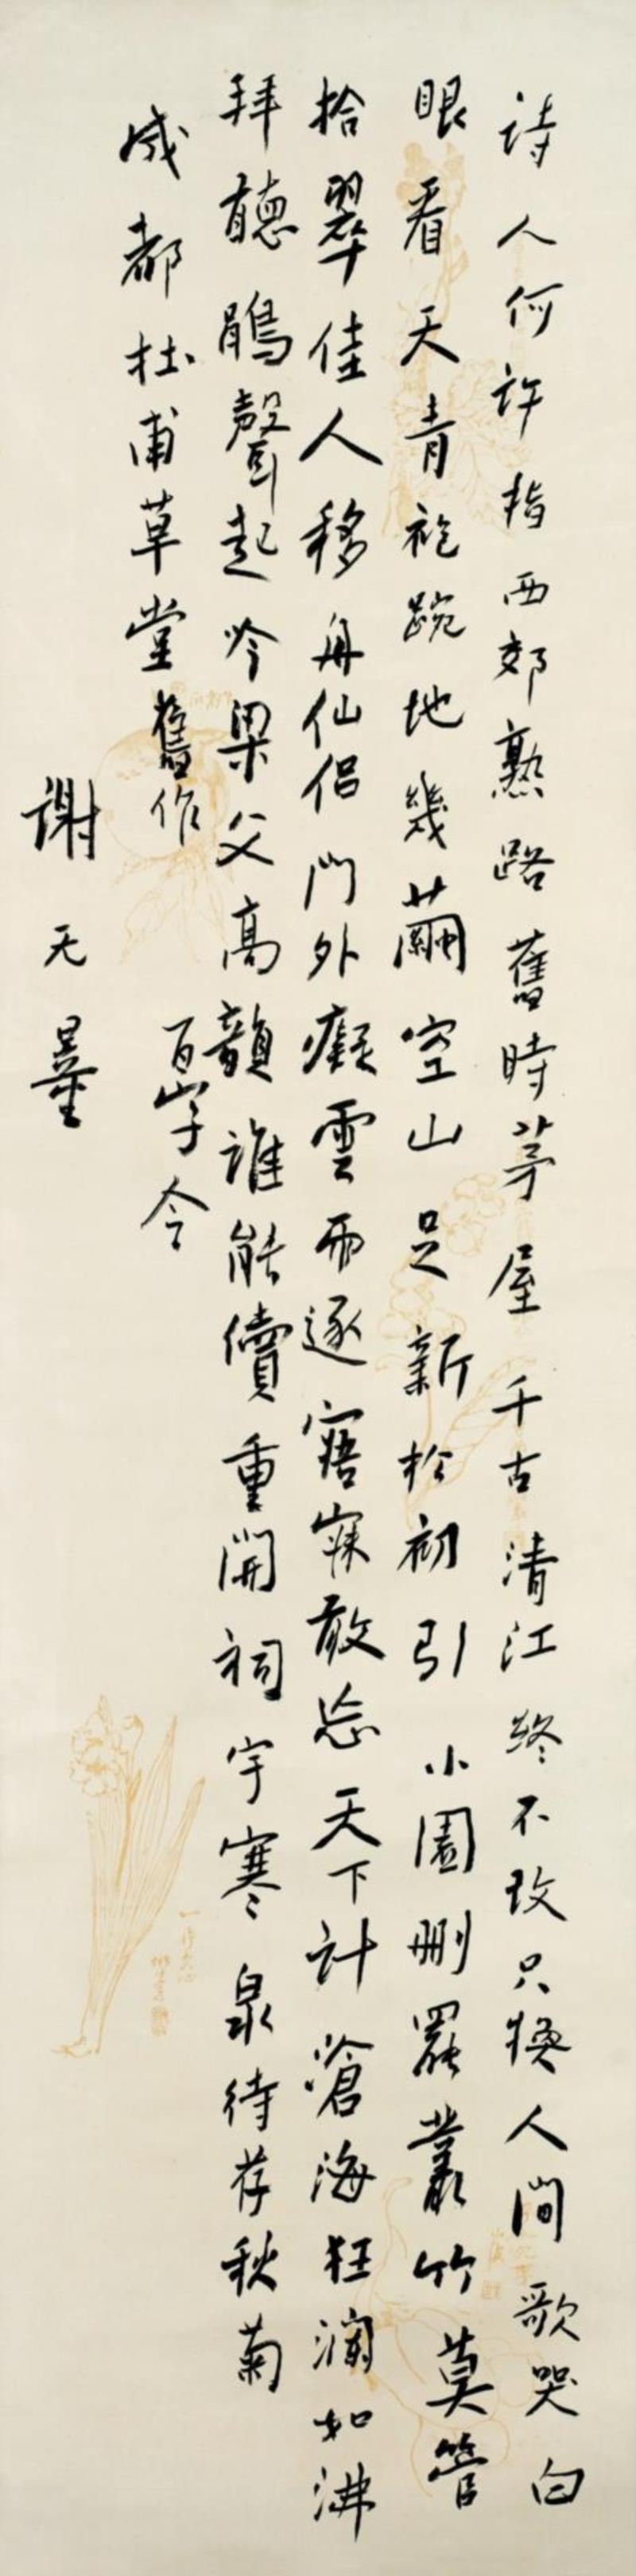 詩人何許指西郊熟路舊時茅屋千古清江終不改只換人間歌哭白
眼看天青袍踠地幾繭空山足新松初引小園刪罷叢竹莫管
拾翠佳人移舟仙侶門外癡雲雨逐寤寐敢忘天下計滄海狂瀾如沸
拜聽鵑聲起吟梁父高韻誰能續重開祠宇寒泉待荐秋菊
成都杜甫草堂舊作 百字令
謝无量